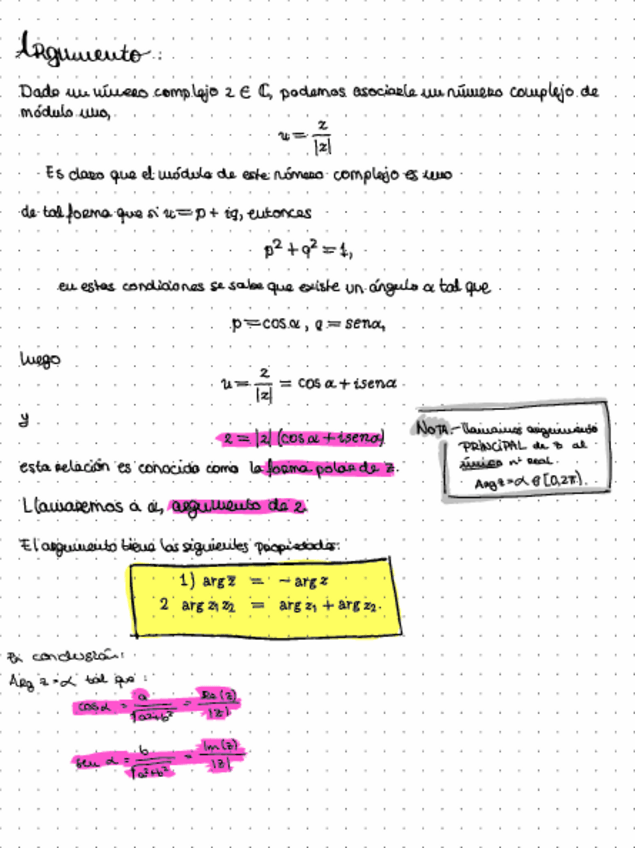 Argumento:
Dado un número complejo z ∈ ℂ, podemos asociarle un número complejo de
módulo uno,
u = z/|z|
Es claro que el módulo de este número complejo es uno
de tal forma que si u = p + iq, entonces
p² + q² = 1,
en estas condiciones se sabe que existe un ángulo α tal que
p = cos α, q = sen α,
luego
u = z/|z| = cos α + i sen α
y
z = |z| (cos α + i sen α)
NOTA.- Llamamos argumento
PRINCIPAL de z al
único nº real
Arg z = α ∈ [0, 2π).
esta relación es conocida como la forma polar de z.
Llamaremos a α, argumento de z
El argumento tiene las siguientes propiedades:
1) arg z̅ = - arg z
2 arg z₁z₂ = arg z₁ + arg z₂.
En conclusión:
Arg z = α tal que:
cos α = a/√a²+b² = Re(z)/|z|
sen α = b/√a²+b² = Im(z)/|z|